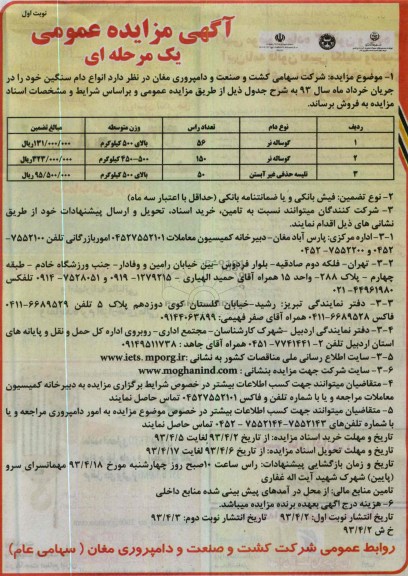 نوبت اول
آگهی مزایده عمومی
یک مرحله ای
۱- موضوع مزایده: شرکت سهامی کشت و صنعت و دامپروری مغان در نظر دارد انواع دام سنگین خود را در
جریان خرداد ماه سال ۹۳ به شرح جدول ذیل از طریق مزایده عمومی و براساس شرایط و مشخصات اسناد
مزایده به فروش برساند.
ردیف نوع دام تعداد راس وزن متوسطه مبالغ تضمین
۱ گوساله نر ۵۶ بالای ۵۰۰ کیلوگرم ۱۳۱/۰۰۰/۰۰۰ ریال
۲ گوساله نر ۱۵۰ ۵۰۰-۴۵۰ کیلوگرم ۳۲۳/۰۰۰/۰۰۰ ریال
۳ تلیسه حذفی غیر آبستن ۵۰ بالای ۵۰۰ کیلوگرم ۹۵/۵۰۰/۰۰۰ ریال
۲- نوع تضمین: فیش بانکی و یا ضمانتنامه بانکی (حداقل با اعتبار سه ماه)
۳- شرکت کنندگان میتوانند نسبت به تامین، خرید اسناد، تحویل و ارسال پیشنهادات خود از طریق
نشانی های ذیل اقدام نمایند.
۳-۱- اداره مرکزی: پارس آباد مغان- دبیرخانه کمیسیون معاملات ۰۴۵۲۷۵۵۲۱۰۱ امور بازرگانی تلفن ۷۵۵۲۱۰۰-
۰۴۵۲ و ۷۵۵۲۲۰۰-۰۴۵۲
۳-۲- تهران- فلکه دوم صادقیه- بلوار فردوس- بین خیابان رامین و وفادار- جنب ورزشگاه خادم - طبقه
چهارم - پلاک ۲۸۸- واحد ۱۵ همراه آقای حمید الهیاری - ۱۲۷۹۲۱۵-۰۹۱۹ و ۷۵۲۸۰۵۱-۰۹۱۴ تلفکس
۴۴۹۶۱۹۸۰-۰۲۱
۳-۳- دفتر نمایندگی تبریز: رشید-خیابان گلستان کوی دوزدهم پلاک ۵ تلفن ۶۶۸۹۵۲۹-۰۴۱۱
فاکس ۶۶۸۹۵۲۸-۰۴۱۱ همراه آقای صادق فهیمی: ۰۹۱۴۴۰۶۳۸۹۹
۳-۴- دفتر نمایندگی اردبیل -شهرک کارشناسان- مجتمع اداری- روبروی اداره کل حمل و نقل و پایانه های
استان اردبیل تلفن ۲-۷۷۴۱۴۴۱-۰۴۵۱ همراه آقای جاهد : ۰۹۱۴۹۵۱۱۷۳۸
۳-۵- سایت اطلاع رسانی ملی مناقصات کشور به نشانی : www.iets.mporg.ir
۳-۶- سایت شرکت جهت مزایده بنشانی : www.moghanind.com
۴- متقاضیان میتوانند جهت کسب اطلاعات بیشتر در خصوص شرایط برگزاری مزایده به دبیرخانه کمیسیون
معاملات مراجعه و یا با شماره تلفن و فاکس ۰۴۵۲۷۵۵۲۱۰۱ تماس حاصل نمایند
۵- متقاضیان میتوانند جهت کسب اطلاعات بیشتر در خصوص موضوع مزایده به امور دامپروری مراجعه و یا
با شماره تلفن‌های ۷۵۵۲۱۴۳-۷۵۵۲۱۴۴ - ۰۴۵۲ تماس حاصل نمایند
تاریخ و مهلت خرید اسناد مزایده: از تاریخ ۹۳/۴/۲ لغایت ۹۳/۴/۵
تاریخ و مهلت تحویل اسناد مزایده: از تاریخ ۹۳/۴/۶ لغایت ۹۳/۴/۱۷
تاریخ و زمان بازگشایی پیشنهادات: راس ساعت ۱۰صبح روز چهارشنبه مورخ ۹۳/۴/۱۸ مهمانسرای سرو
(پایین) شهرک شهید آیت اله غفاری
تامین منابع مالی: از محل در آمدهای پیش بینی شده منابع داخلی
۶- هزینه درج آگهی بعهده برنده مزایده میباشد.
تاریخ انتشار نوبت اول: ۹۳/۴/۲ تاریخ انتشار نوبت دوم: ۹۳/۴/۳
خ ش ۹۳/۴/۲
روابط عمومی شرکت کشت و صنعت و دامپروری مغان ( سهامی عام)